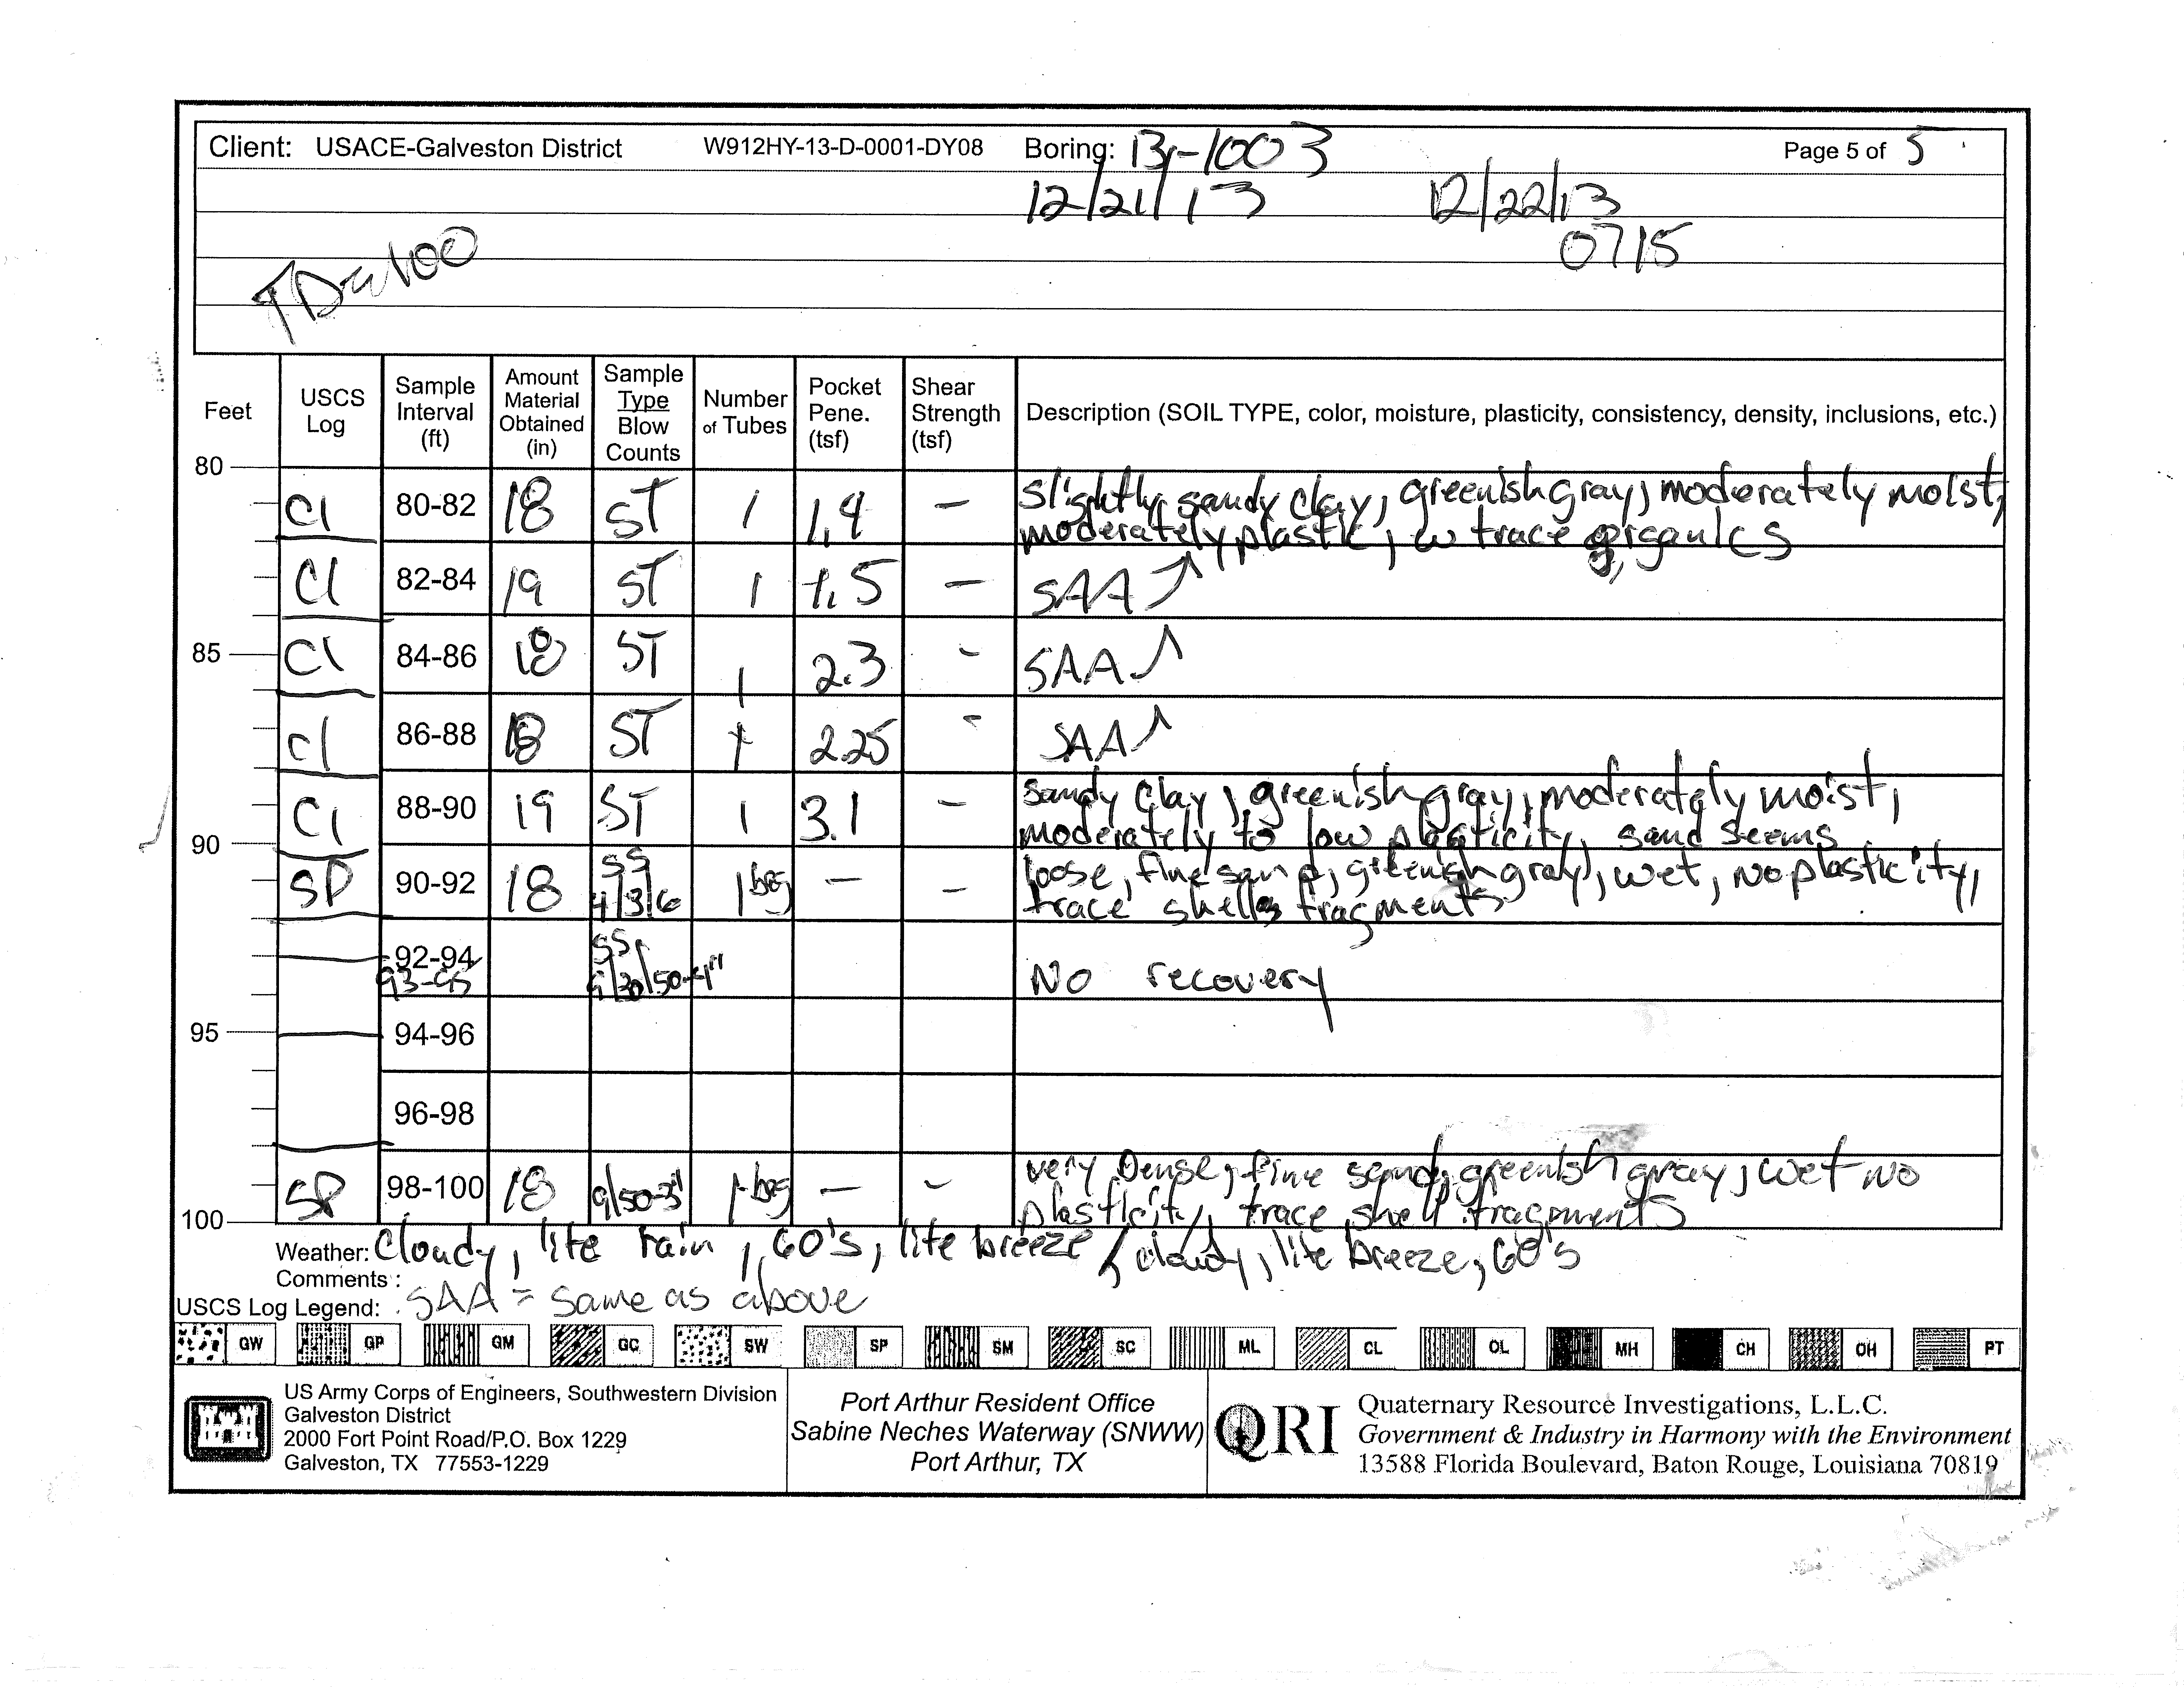 Client: USACE-Galveston District W912HY-13-D-0001-DY08 Boring: 13-1003 Page 5 of 5
12/21/13 12/22/13
0715
TD=100
Feet
USCS Log
Sample Interval (ft)
Amount Material Obtained (in)
Sample Type Blow Counts
Number of Tubes
Pocket Pene. (tsf)
Shear Strength (tsf)
Description (SOIL TYPE, color, moisture, plasticity, consistency, density, inclusions, etc.)
80
Cl 80-82 18 ST 1 1.9 – slightly sandy clay, greenish gray, moderately moist,
moderately plastic, w trace organics
Cl 82-84 19 ST 1 1.5 – SAA ↑
85
Cl 84-86 18 ST 1 2.3 – SAA ↑
Cl 86-88 18 ST 1 2.25 – SAA ↑
Cl 88-90 19 ST 1 3.1 – sandy clay, greenish gray, moderately moist,
moderately to low plasticity, sand seems
90
SP 90-92 18 SS 4/3/6 1 bag – – loose, fine sand, greenish gray, wet, no plasticity,
trace shells fragments
92-94 SS
93-95 9/30/50-4" No recovery
95
94-96
96-98
SP 98-100 18 9/50-3" 1-bag – – very Dense, fine sand, greenish gray, wet no
plasticity, trace shell fragments
100
Weather: Cloudy, lite rain, 60's, lite breeze / cloudy, lite breeze, 60's
Comments:
USCS Log Legend: SAA = same as above
GW GP GM GC SW SP SM SC ML CL OL MH CH OH PT
US Army Corps of Engineers, Southwestern Division
Galveston District
2000 Fort Point Road/P.O. Box 1229
Galveston, TX 77553-1229
Port Arthur Resident Office
Sabine Neches Waterway (SNWW)
Port Arthur, TX
QRI
Quaternary Resource Investigations, L.L.C.
Government & Industry in Harmony with the Environment
13588 Florida Boulevard, Baton Rouge, Louisiana 70819